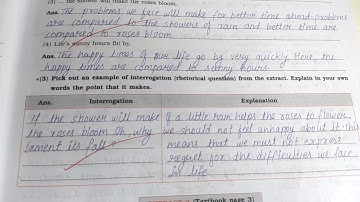 (3) ... the shower will make the roses bloom.
Ans. The problems we face will make for better time ahead. problems
are compared to the showers of rain and better time are
compared to roses bloom
(4) Life's sunny hours flit by.
Ans. The happy times of our life go by very quickly Here, the
happy times are compared to sunny hours.
*(3) Pick out an example of interrogation (rhetorical question) from the extract. Explain in your own
words the point that it makes.
Ans. Interrogation Explanation
If the shower will make
the roses bloom Oh, why
lament its fall ?
If a little rain helps the roses to flower,
we should not feel unhappy about it. this
means that we must not express
regret for the difficulties we face
in life.
(Textbook page 3)